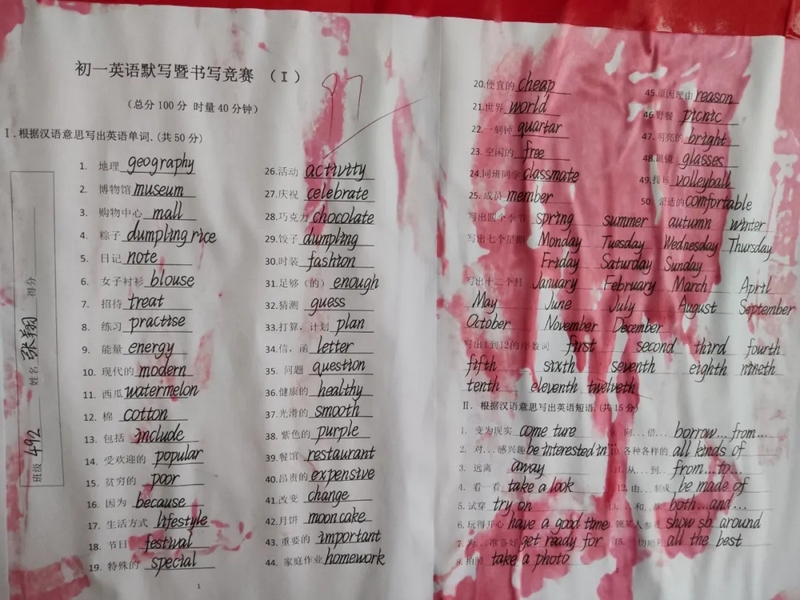 初一英语默写暨书写竞赛 （I）
（总分 100 分 时量 40 分钟）
I. 根据汉语意思写出英语单词.(共 50 分)
1. 地理 geography
2. 博物馆 museum
3. 购物中心 mall
4. 粽子 dumpling rice
5. 日记 note
6. 女子衬衫 blouse
7. 招待 treat
8. 练习 practise
9. 能量 energy
10. 现代的 modern
11. 西瓜 watermelon
12. 棉 cotton
13. 包括 include
14. 受欢迎的 popular
15. 贫穷的 poor
16. 因为 because
17. 生活方式 lifestyle
18. 节日 festival
19. 特殊的 special
26.活动 activity
27.庆祝 celebrate
28.巧克力 chocolate
29.饺子 dumpling
30.时装 fashion
31.足够（的）enough
32.猜测 guess
33.打算，计划 plan
34.信，函 letter
35. 问题 question
36.健康的 healthy
37.光滑的 smooth
38.紫色的 purple
39.餐馆 restaurant
40.昂贵的 expensive
41.改变 change
42.月饼 mooncake
43.重要的 important
44. 家庭作业 homework
得分
姓名 张翔
班级 492
1
20.便宜的 cheap
21.世界 world
22.一刻钟 quartar
23.空闲的 free
24.同班同学 classmate
25.成员 member
45.原因理由 reason
46.野餐 picnic
47.明亮的 bright
48.眼镜 glasses
49.排球 volleyball
50 舒适的 comfortable
写出四个季节 spring summer autumn winter
写出七个星期 Monday Tuesday Wednesday Thursday
Friday Saturday Sunday
写出十二个月 January February March April
May June July August September
October November December
写出1到12的序数词 first second third fourth
fifth sixth seventh eighth nineth
tenth eleventh twelveth
II. 根据汉语意思写出英语短语.(共 15 分)
1. 变为现实 come ture
2. 对...感兴趣 be interested in
3. 远离 away
4. 看一看 take a look
5. 试穿 try on
6.玩得开心 have a good time
get ready for
take a photo
向...借... borrow... from...
各种各样的 all kinds of
从...到... from...to...
be made of
both...and...
show sb around
all the best